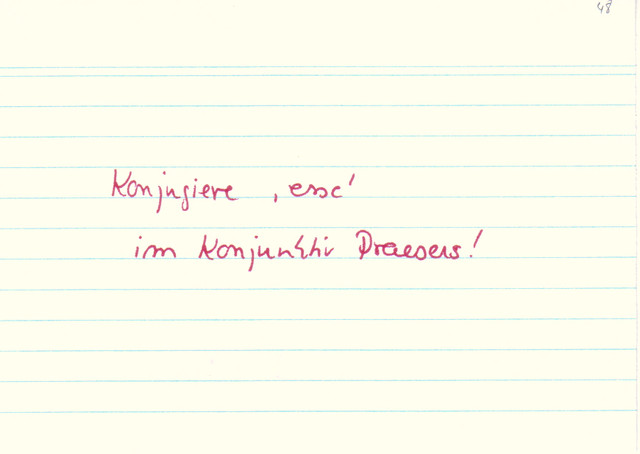 48
Konjugiere ‚esse'
im Konjunktiv Praesens!